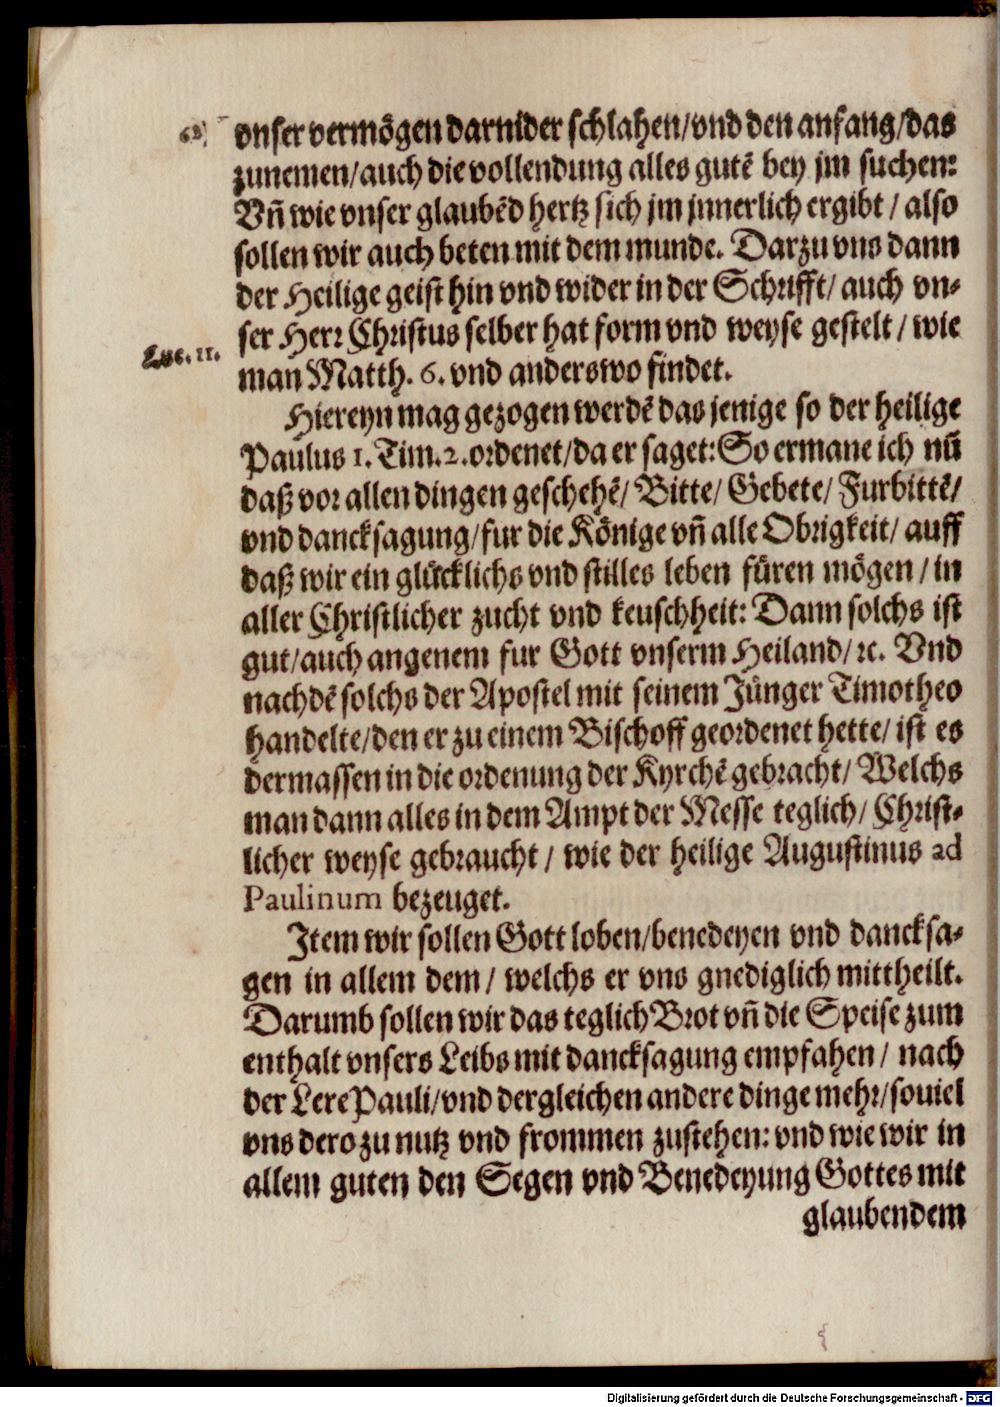 vnser vermögen darnider schlahen/vnd den anfang/das
zunemen/auch die vollendung alles gutē bey jm suchen:
Vñ wie vnser glaubēd hertz sich jm jnnerlich ergibt / also
sollen wir auch beten mit dem munde. Darzu vns dann
der Heilige geist hin vnd wider in der Schrifft/ auch vn-
ser Herr Christus selber hat form vnd weyse gestelt / wie
Luc. 11.
man Matth. 6. vnd anderswo findet.
Hiereyn mag gezogen werdē das jenige so der heilige
Paulus 1. Tim. 2. ordenet/da er saget: So ermane ich nū
daß vor allen dingen geschehē/ Bitte/ Gebete/ Furbittē/
vnd dancksagung/fur die Könige vñ alle Obrigkeit/ auff
daß wir ein glücklichs vnd stilles leben füren mögen / in
aller Christlicher zucht vnd keuschheit: Dann solchs ist
gut/auch angenem fur Gott vnserm Heiland/ ꝛc. Vnd
nachdē solchs der Apostel mit seinem Jünger Timotheo
handelte/den er zu einem Bischoff geordenet hette/ ist es
dermassen in die ordenung der Kyrchē gebracht/ Welchs
man dann alles in dem Ampt der Messe teglich/ Christ-
licher weyse gebraucht / wie der heilige Augustinus ad
Paulinum bezeuget.
Jtem wir sollen Gott loben/benedeyen vnd dancksa-
gen in allem dem / welchs er vns gnediglich mittheilt.
Darumb sollen wir das teglich Brot vñ die Speise zum
enthalt vnsers Leibs mit dancksagung empfahen / nach
der Lere Pauli/vnd dergleichen andere dinge mehr/souiel
vns dero zu nutz vnd frommen zustehen: vnd wie wir in
allem guten den Segen vnd Benedeyung Gottes mit
glaubendem
Digitalisierung gefördert durch die Deutsche Forschungsgemeinschaft - DFG